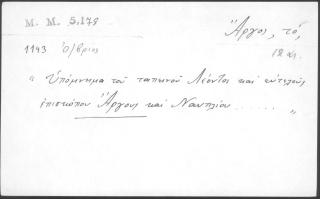 M. M. 5.178
Ἄργος, τό,
1143 Ὀ/βριος
12 αι.
" Ὑπόμνημα τοῦ ταπεινοῦ Λέοντος καὶ εὐτελοῦς
ἐπισκόπου Ἄργους καὶ Ναυπλίου . . . . . . . "